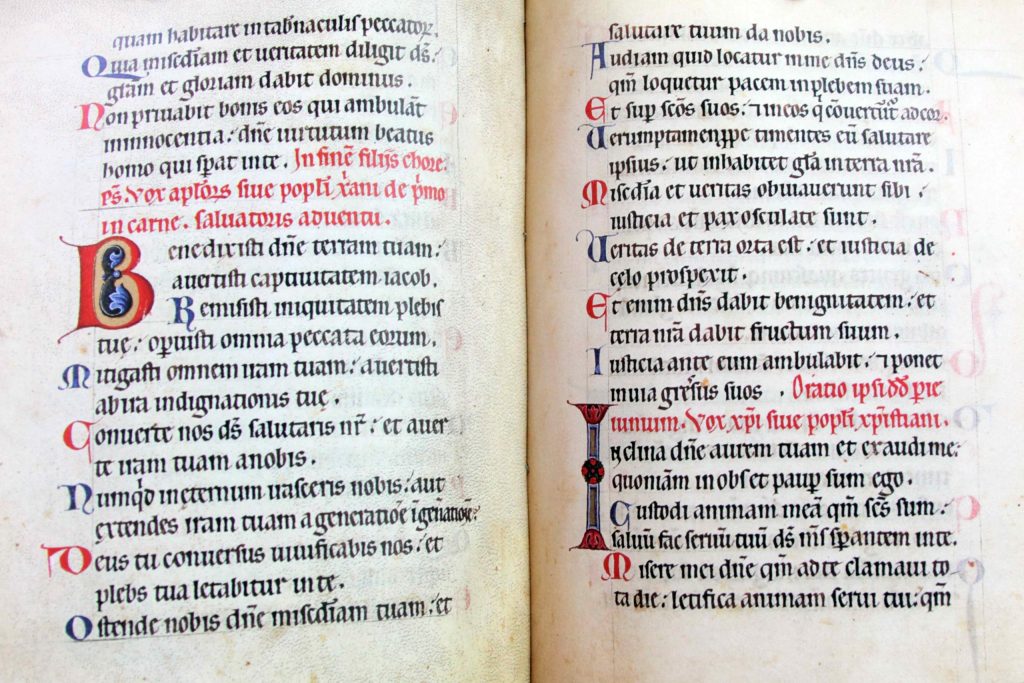 quam habitare in tab̄naculis peccator̄.
Quia mis̄cdiam et ueritatem diligit d̄s:
gl̄am et gloriam dabit dominus.
Non priuabit bonis eos qui ambulāt
innocentia: dn̄e uirtutum beatus
homo qui sp̄at in te. In finē filijs chore.
ps̄. Vox apl̄ors siue popl̄i xp̄ani de p̄mo
in carne saluatoris aduentu.
Benedixisti dn̄e terram tuam:
auertisti captiuitatem iacob.
Remisisti iniquitatem plebis
tuę: op̄uisti omnia peccata eorum.
Mitigasti omnem iram tuam: auertisti
ab ira indignationis tuę
Conuerte nos d̄s salutaris nr̄: et auer
te iram tuam a nobis.
Nunqd in eternum irasceris nobis: aut
extendes iram tuam a generatiōe i generatiōe:
Deus tu conuersus uiuificabis nos: et
plebs tua letabitur in te.
Ostende nobis dn̄e mis̄cdiam tuam: et
salutare tuum da nobis.
Audiam quid loquatur in me dn̄s deus:
qm̄ loquetur pacem in plebem suam.
Et sup̄ sc̄os suos: ⁊ in eos q̄ cōuertūt ad cor.
Uerumptamen ꝓpe timentes eū salutare
ipsius: ut inhabitet gl̄a in terra nr̄a.
Mis̄cdia et ueritas obuiauerunt sibi:
iusticia et pax osculate sunt.
Ueritas de terra orta est: et iusticia de
celo prospexit.
Etenim dn̄s dabit benignitatem: et
terra nr̄a dabit fructum suum.
Iusticia ante eum ambulabit: ⁊ ponet
in uia gressus suos. Oratio ipsi dd̄ p̄ ie
iunium. Vox xp̄i siue popl̄i xp̄istiani.
Inclina dn̄e aurem tuam et exaudi me:
quoniam inops et paup̄ sum ego.
Custodi animam meā qm̄ sc̄s sum:
saluū fac seruū tuū d̄s m̄s sp̄antem in te.
Miserere mei dn̄e qm̄ ad te clamaui to
ta die: letifica animam serui tui: qm̄